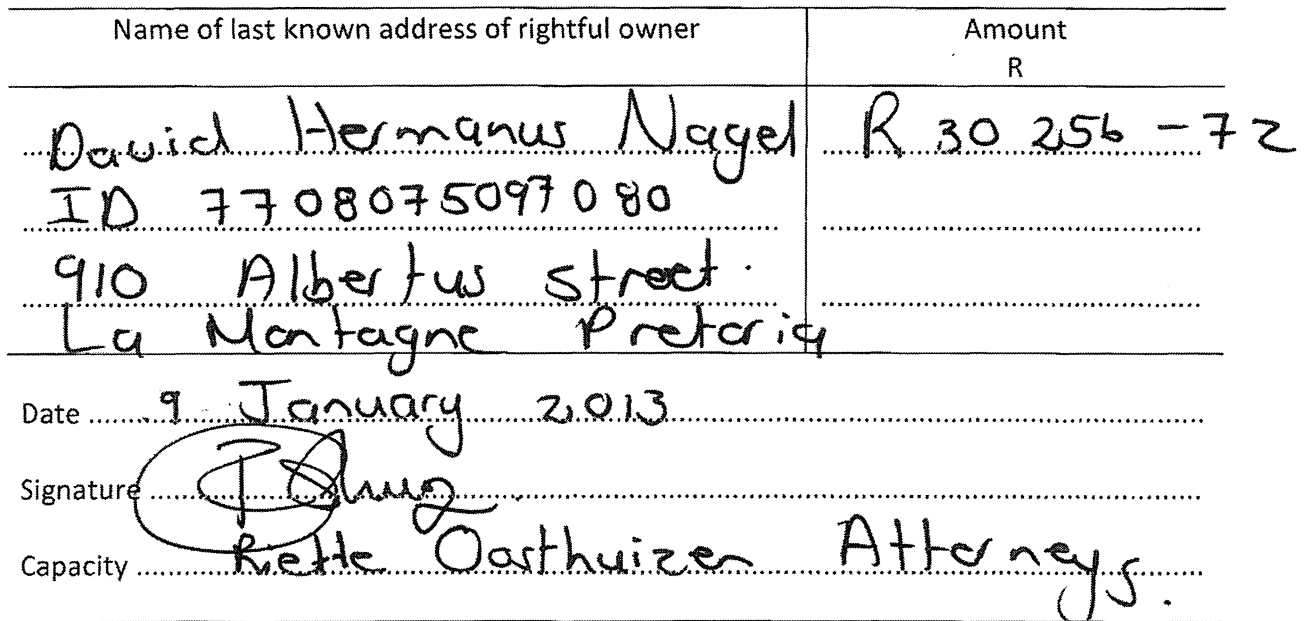 Name of last known address of rightful owner Amount
R
David Hermanus Nagel R 30 256-72
ID 7708075097080
910 Albertus street.
La Montagne Pretoria
Date 9 January 2013
Signature
Capacity Riette Oosthuizen Attorneys.